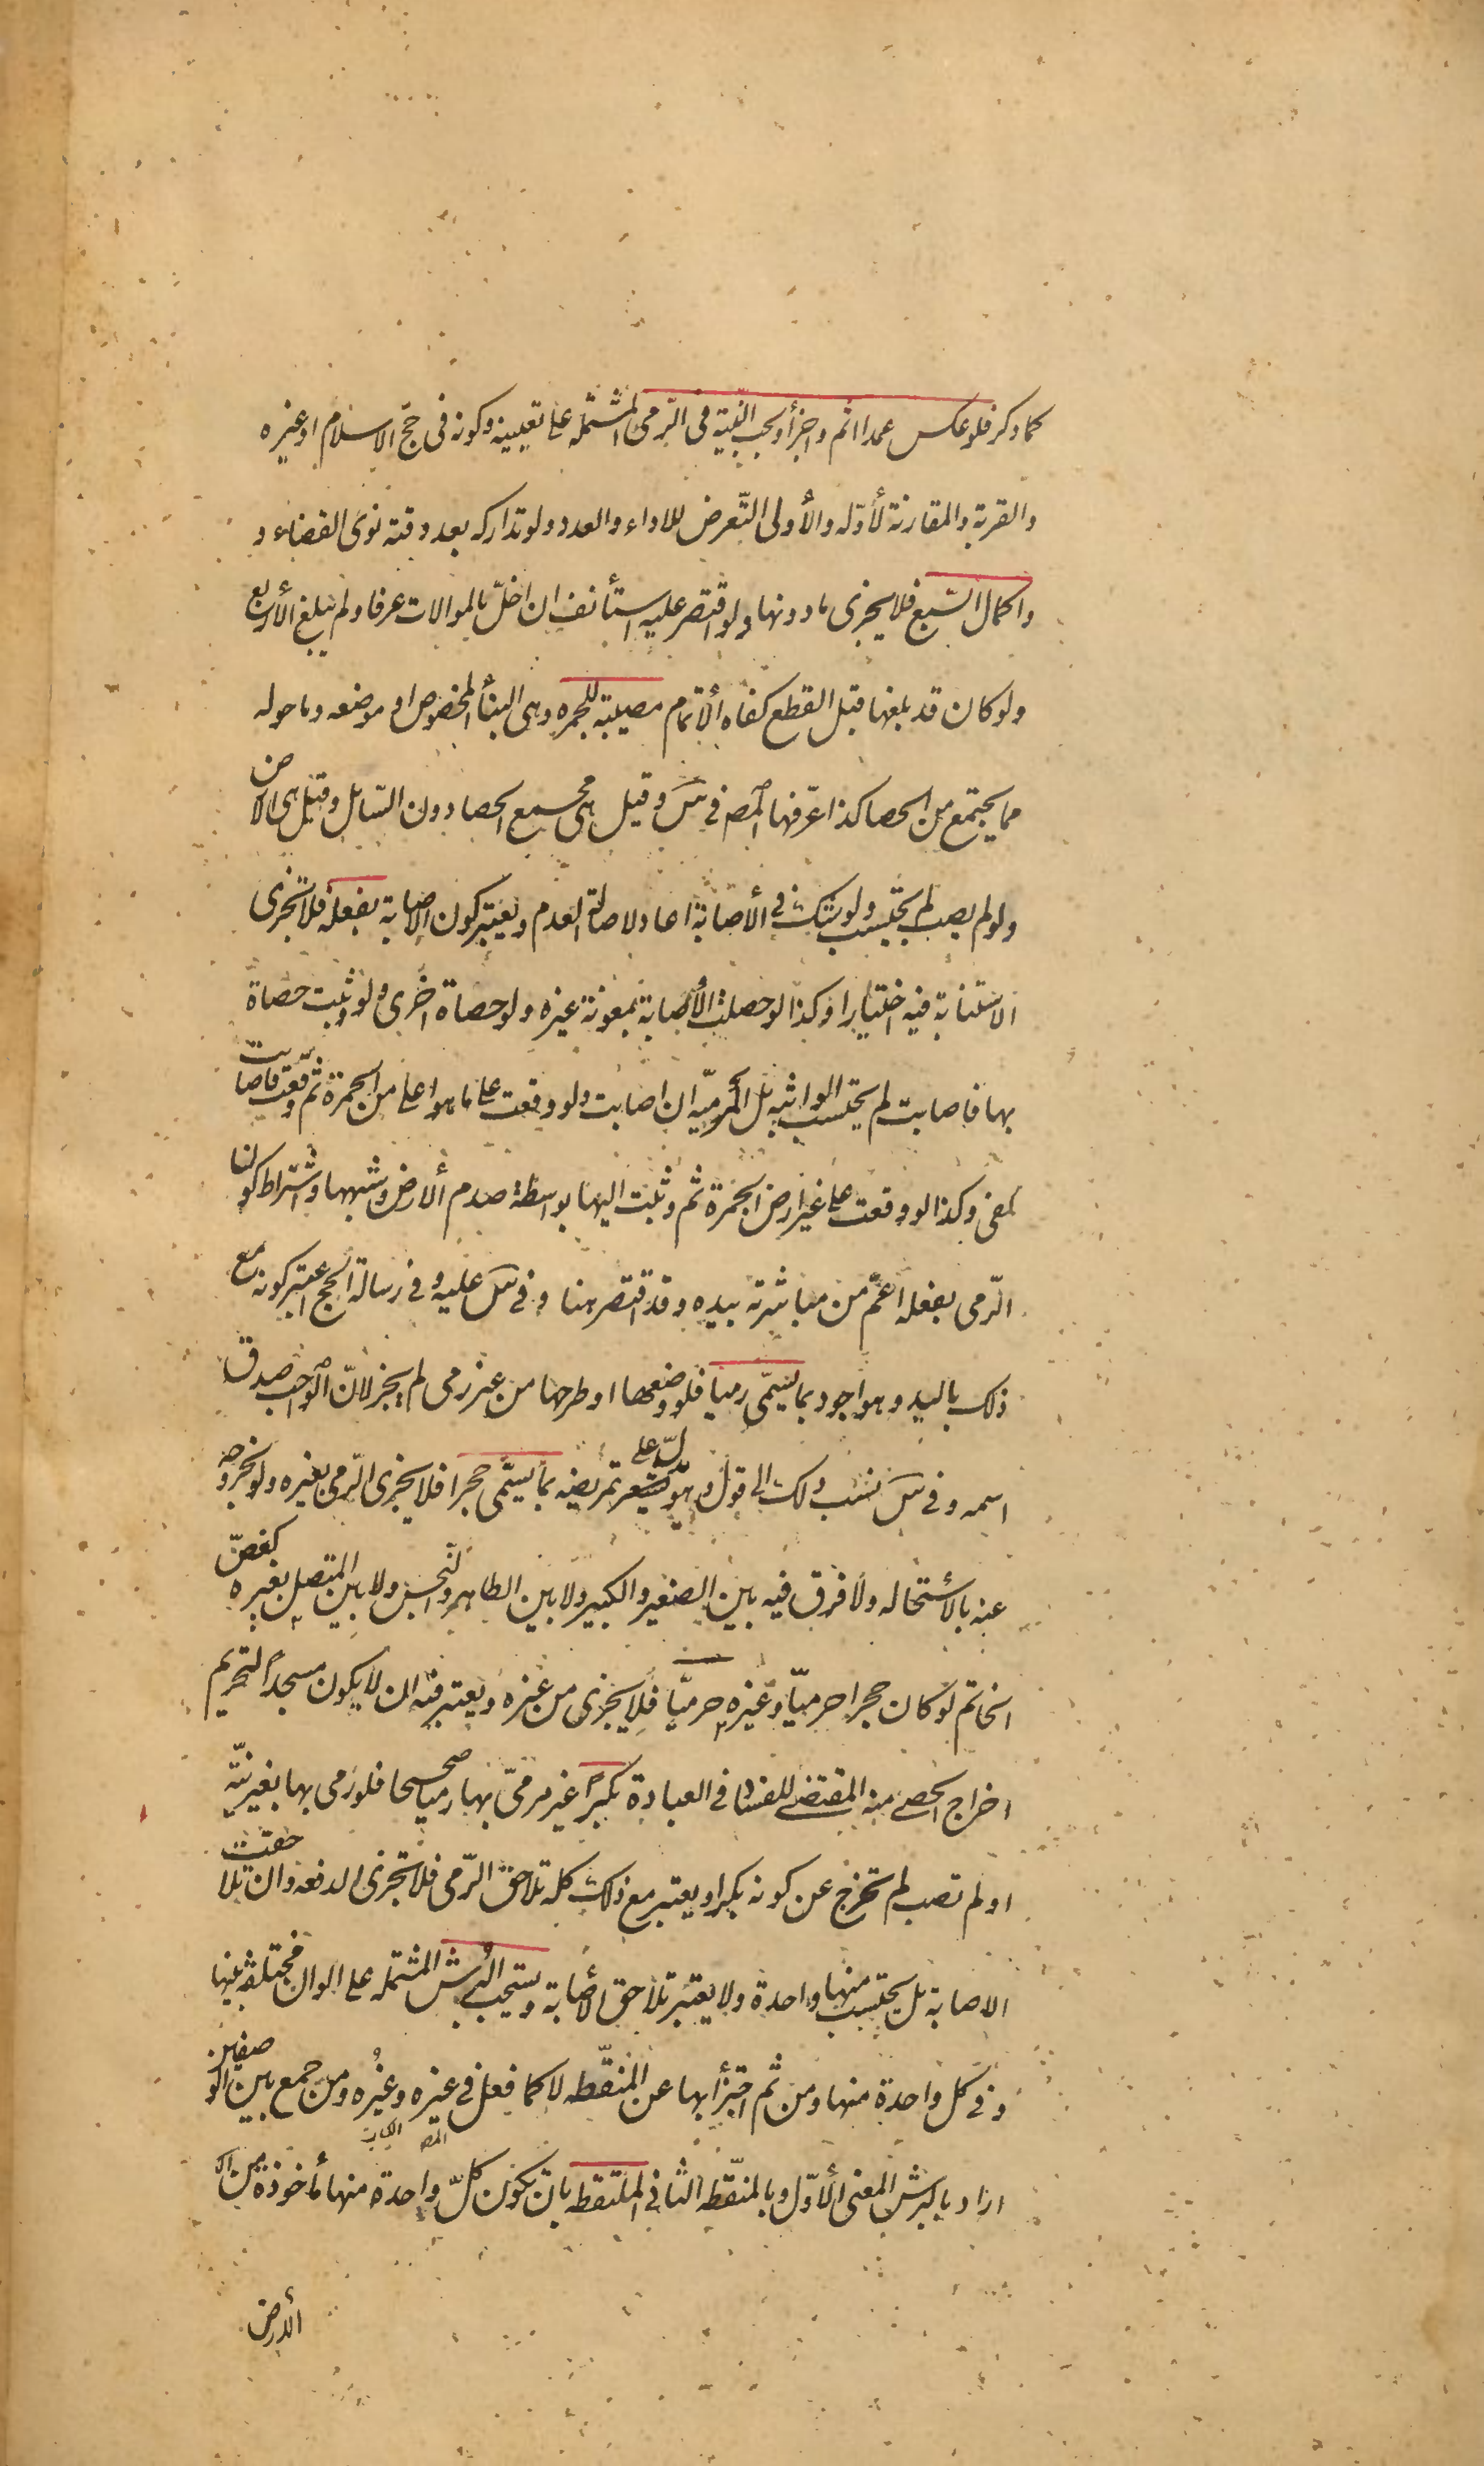 كما ذكر فلو عكس عمدا اثم واجزأ ويجب النّية فى الرّمى المشتملة على تعيينه وكونه فى حجّ الاسلام او غيره
والقربة والمقارنة لأوّله والأولى التّعرض للاداء والعدد ولو تداركه بعد وقته نوى القضاء و
واكمال السّبع فلا يجزى ما دونها ولو اقتصر عليه استأنف ان اخلّ بالموالات عرفا ولم يبلغ الأربع
ولو كان قد بلغها قبل القطع كفاه الأتمام مصيبة للجمره وهى البنأ المخصوص او موضعه وما حوله
مما يجتمع من الحصا كذا عرّفها المصـ فى س وقيل هى مجمع الحصا دون السّائل وقيل هى الارض
ولو لم يصب لم يحتسب ولو شك فى الأصابة اعاد لاصالة العدم ويعتبر كون الاصابة بفعله فلا تجزى
الاستنابة فيه اختيارا وكذا لو حصلت الأصابة بمعونة غيره ولو حصاة اخرى ولو وثبت حصاة
بها فاصابت لم يحتسب الواثبه بل المرميّه ان اصابت ولو وقعت على ما هو اعلى من الجمرة ثم وقعت فاصابت
كفى وكذا لو وقعت على غير ارض الجمرة ثم وثبت اليها بواسطة صدم الأرض وشبهها واشتراط كون
الرّمى بفعله اعمّ من مباشرته بيده وقد اقتصر هنا وفى س عليه وفى رسالة الحج اعتبر كونه مع
ذلك باليد وهو اجود بما يسمّى رميا فلو وضعها او طرحها من غير رمى لم يجز لانّ الواجب صدق
اسمه وفى س نسب ذلك الى قول وهو يدلّ على تمريضه بما يسمّى حجرا فلا يجزى الرّمى بغيره ولو بخروجه
عنه بالأستحاله ولا فرق فيه بين الصغير والكبير ولا بين الطاهر والنّجس ولا بين المتصل بغيره كفصّ
الخاتم لو كان حجرا حرميّا وغيره حرميّا فلا يجزى من غيره ويعتبر فيه ان لا يكون مسجداً لتحريم
اخراج الحصى منه المقتضى للفساد فى العبادة بكراً غير مرمىّ بها رميا صحيحا فلو رمى بها بغير نيّة
او لم تصب لم تخرج عن كونه بكرا ويعتبر مع ذلك كله تلاحق الرّمى فلا تجزى الدفعه وان تلاحقت
الاصابة بل يحتسب منها واحدة ولا يعتبر تلاحق الأصابة ويستحب البُرش المشتمله على الوان مختلفة بينها
وفى كل واحدة منها ومن ثم اجتزأ بها عن المنقّطه لا كما فعل فى غيره وغيُره ومن جمع بين الوصفين
اراد بالبرش المعنى الأوّل وبالمنقّطه الثانى الملتقطه بان تكون كلّ واحدة منها مأخوذة من ال
الأرض